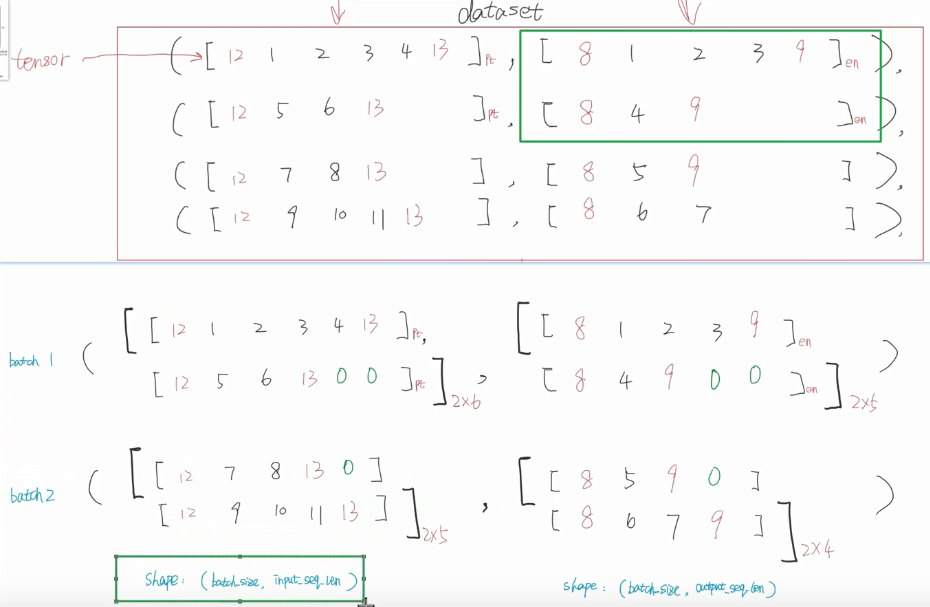 dataset
tensor
( [ 12 1 2 3 4 13 ]pt , [ 8 1 2 3 9 ]en ),
( [ 12 5 6 13 ]pt , [ 8 4 9 ]en ),
( [ 12 7 8 13 ] , [ 8 5 9 ] ),
( [ 12 9 10 11 13 ] , [ 8 6 7 ] ),
batch 1 ( [ [ 12 1 2 3 4 13 ]pt, [ [ 8 1 2 3 9 ]en
[ 12 5 6 13 0 0 ]pt ]2×6 , [ 8 4 9 0 0 ]en ]2×5 )
batch 2 ( [ [ 12 7 8 13 0 ] [ [ 8 5 9 0 ]
[ 12 9 10 11 13 ] ]2×5 , [ 8 6 7 9 ] ]2×4 )
shape: (batch_size, input_seq_len) shape: (batch_size, output_seq_len)